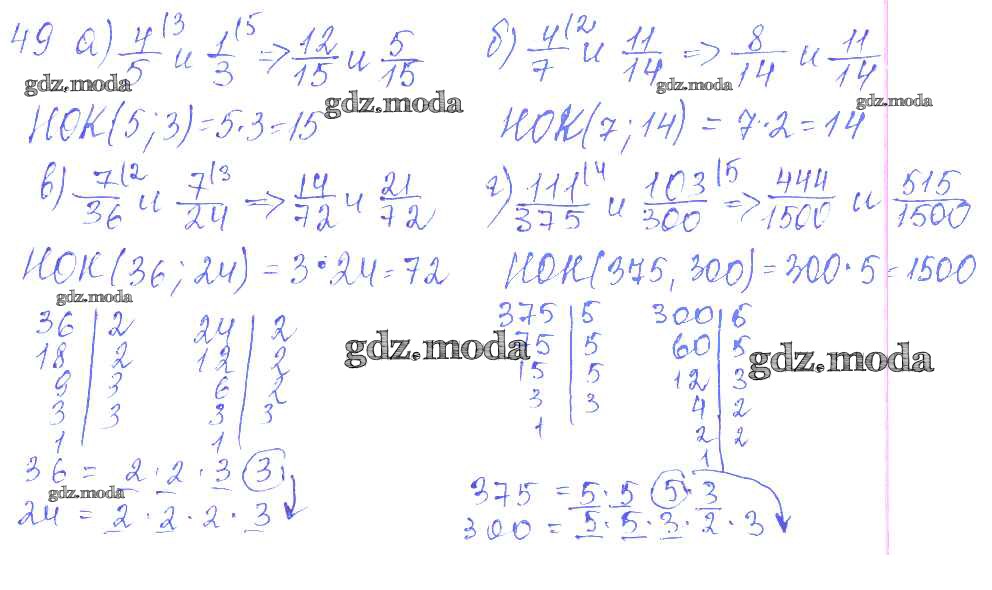 49 а) 4/5 (3 и 1/3 (5 => 12/15 и 5/15
gdz.moda
gdz.moda
НОК(5;3)=5·3=15
б) 4/7 (2 и 11/14 => 8/14 и 11/14
gdz.moda
gdz.moda
НОК(7;14) = 7·2=14
в) 7/36 (2 и 7/24 (3 => 14/72 и 21/72
НОК(36;24) = 3·24=72
gdz.moda
36 | 2 24 | 2
18 | 2 12 | 2
9 | 3 6 | 2
3 | 3 3 | 3
1 1
gdz.moda
36 = 2·2·3 3
gdz.moda
24 = 2·2·2·3
г) 111/375 (4 и 103/300 (5 => 444/1500 и 515/1500
НОК(375,300)=300·5=1500
375 | 5 300 | 5
75 | 5 60 | 5
gdz.moda
15 | 5 12 | 3
3 | 3 4 | 2
1 2 | 2
1
375 = 5·5 5·3
300 = 5·5·3·2·3